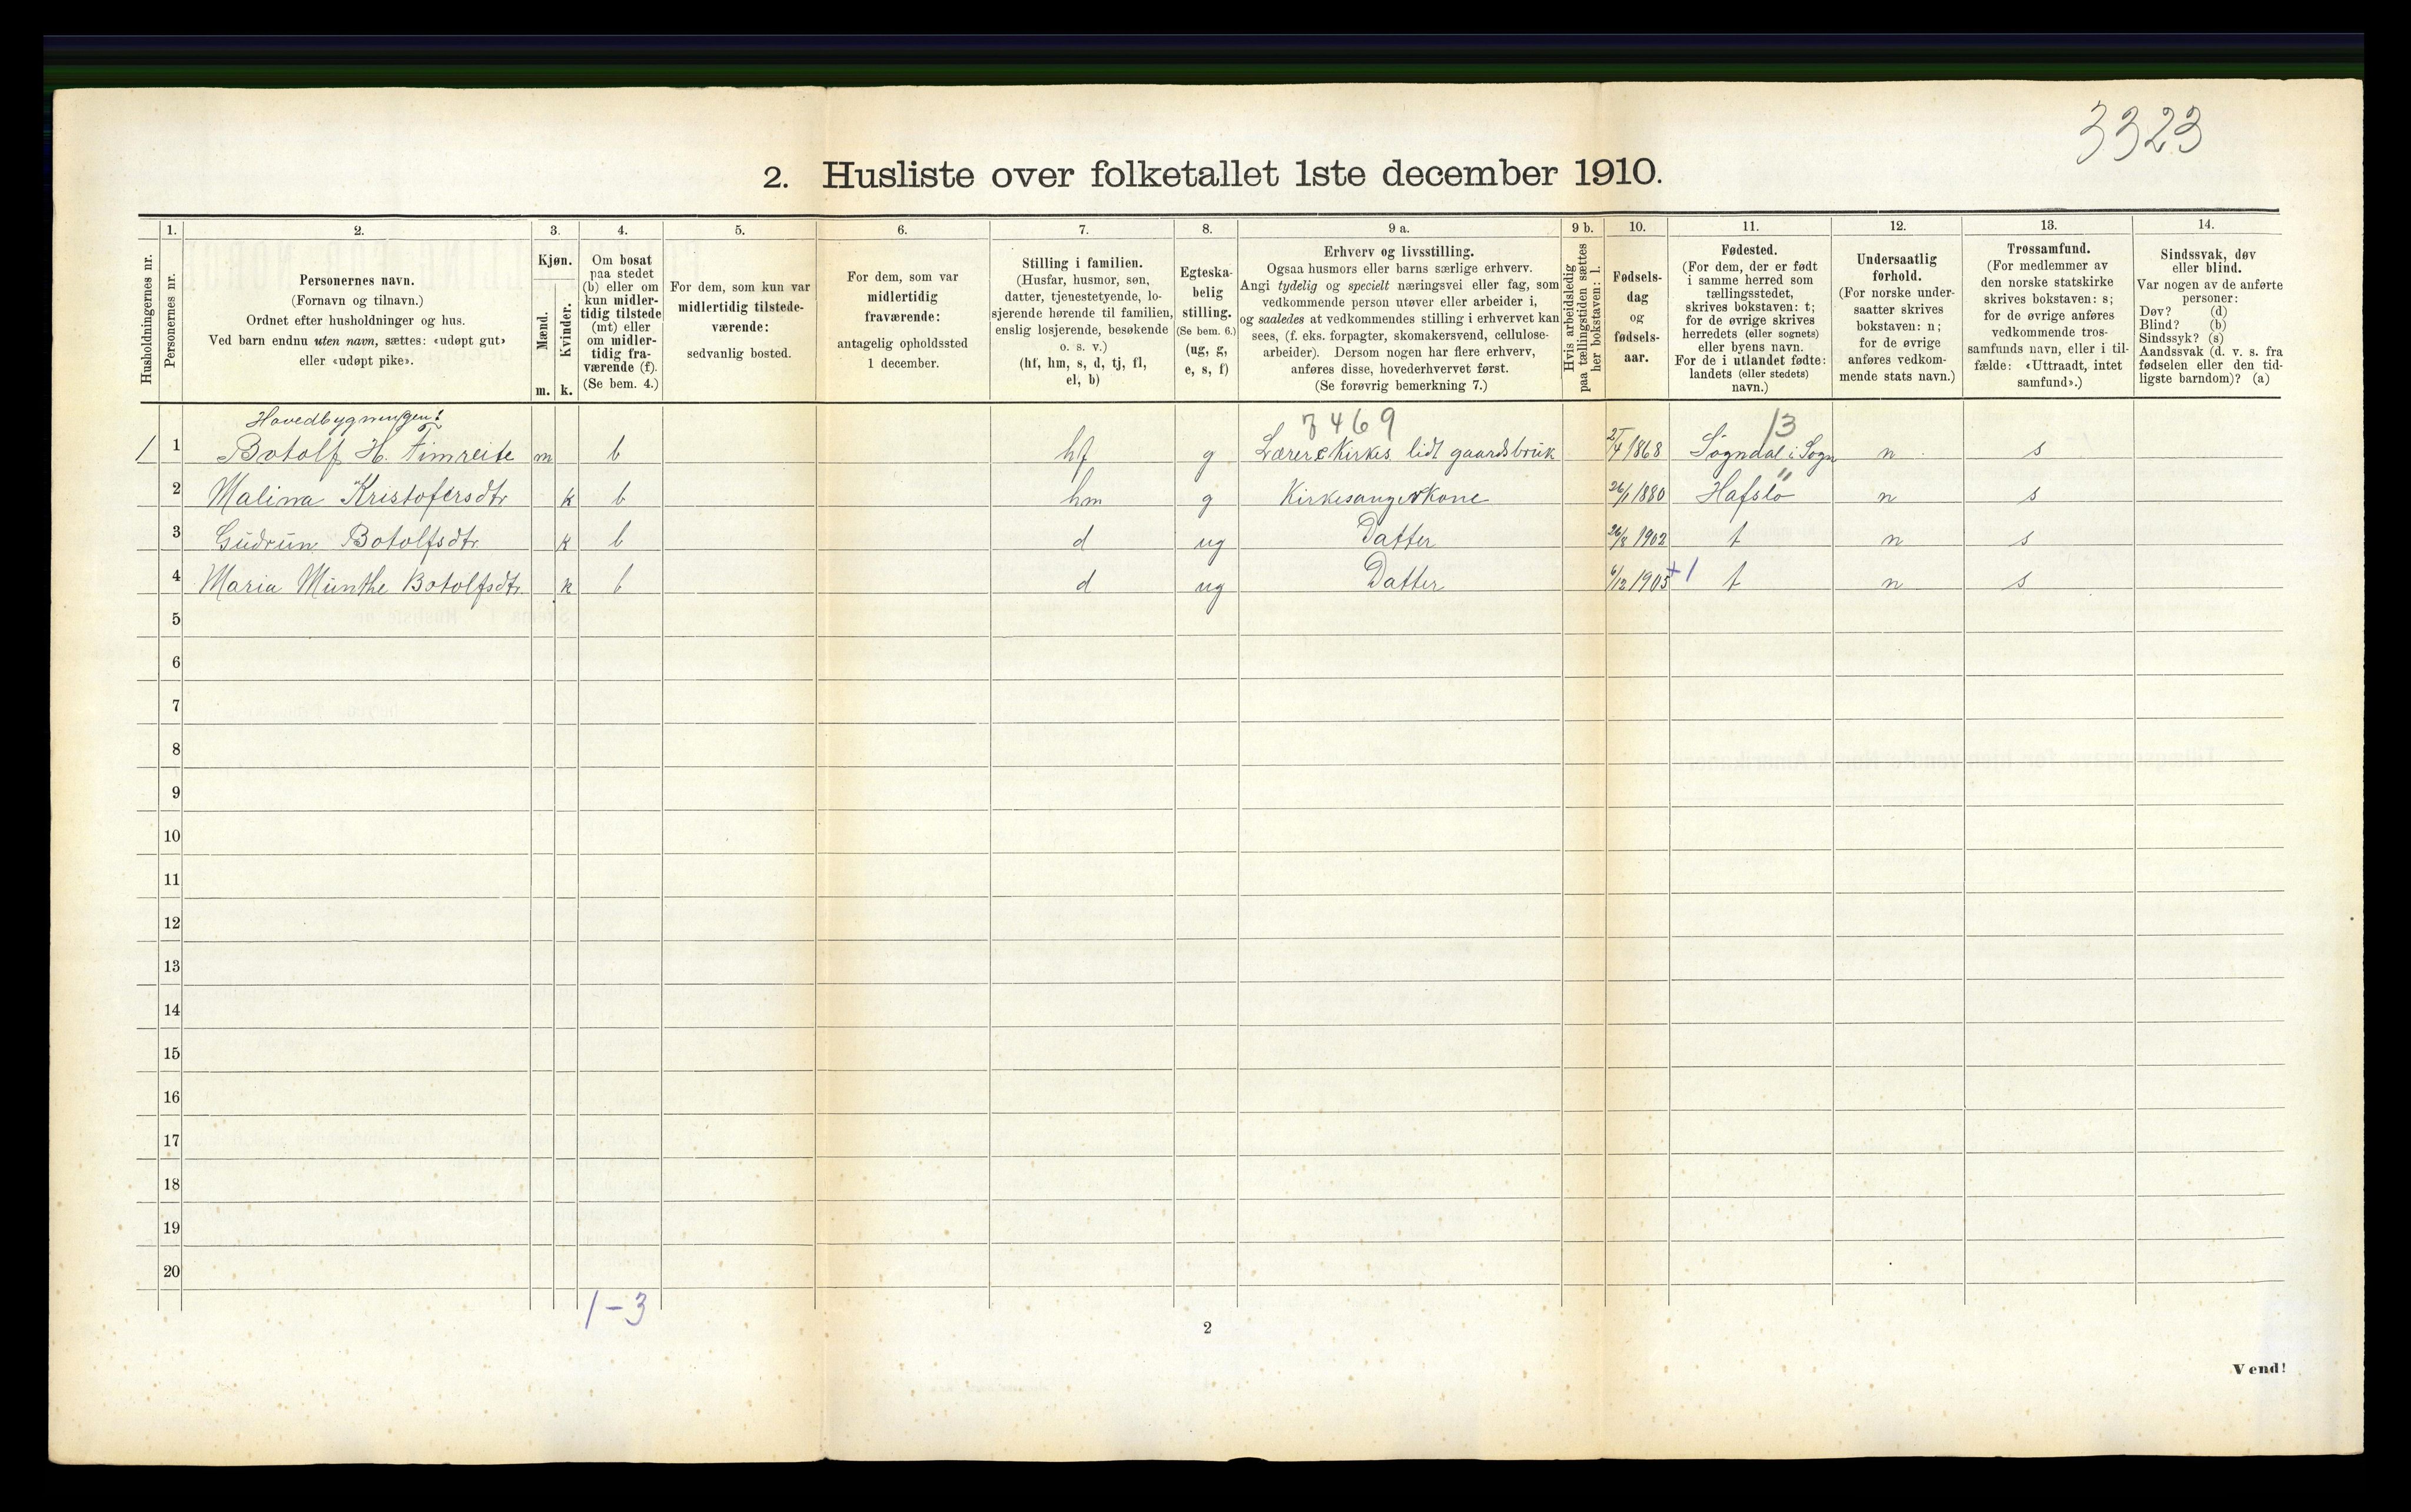 3323
2. Husliste over folketallet 1ste december 1910.
1. 2. 3. 4. 5. 6. 7. 8. 9 a. 9 b. 10. 11. 12. 13. 14.
Husholdningernes nr.
Personernes nr.
Personernes navn.
(Fornavn og tilnavn.)
Ordnet efter husholdninger og hus.
Ved barn endnu uten navn, sættes: «udøpt gut»
eller «udøpt pike».
Kjøn.
Mænd.
Kvinder.
m. k.
Om bosat
paa stedet
(b) eller om
kun midler-
tidig tilstede
(mt) eller
om midler-
tidig fra-
værende (f).
(Se bem. 4.)
For dem, som kun var
midlertidig tilstede-
værende:
sedvanlig bosted.
For dem, som var
midlertidig
fraværende:
antagelig opholdssted
1 december.
Stilling i familien.
(Husfar, husmor, søn,
datter, tjenestetyende, lo-
sjerende hørende til familien,
enslig losjerende, besøkende
o. s. v.)
(hf, hm, s, d, tj, fl,
el, b)
Egteska-
belig
stilling.
(Se bem. 6.)
(ug, g,
e, s, f)
Erhverv og livsstilling.
Ogsaa husmors eller barns særlige erhverv.
Angi tydelig og specielt næringsvei eller fag, som
vedkommende person utøver eller arbeider i,
og saaledes at vedkommendes stilling i erhvervet kan
sees, (f. eks. forpagter, skomakersvend, cellulose-
arbeider). Dersom nogen har flere erhverv,
anføres disse, hovederhvervet først.
(Se forøvrig bemerkning 7.)
Hvis arbeidsledig
paa tællingstiden sættes
her bokstaven: l.
Fødsels-
dag
og
fødsels-
aar.
Fødested.
(For dem, der er født
i samme herred som
tællingsstedet,
skrives bokstaven: t;
for de øvrige skrives
herredets (eller sognets)
eller byens navn.
For de i utlandet fødte:
landets (eller stedets)
navn.)
Undersaatlig
forhold.
(For norske under-
saatter skrives
bokstaven: n;
for de øvrige
anføres vedkom-
mende stats navn.)
Trossamfund.
(For medlemmer av
den norske statskirke
skrives bokstaven: s;
for de øvrige anføres
vedkommende tros-
samfunds navn, eller i til-
fælde: «Uttraadt, intet
samfund».)
Sindssvak, døv
eller blind.
Var nogen av de anførte
personer:
Døv? (d)
Blind? (b)
Sindssyk? (s)
Aandssvak (d. v. s. fra
fødselen eller den tid-
ligste barndom)? (a)
Hovedbygningen: 7469 13
1 1 Botolf H. Timreite m b hf g Lærer & Kirkes. lidt gaardsbruk /4 1868 Sogndal i Sogn n s
2 Malina Kristofersdtr k b hm g Kirkesangerkone 26/1 1880 Hafslo " n s
3 Gudrun Botolfsdtr. k b d ug Datter 26/8 1902 t n s
4 Maria Munthe Botolfsdtr. k b d ug Datter 6/12 1905 +1 t n s
5
6
7
8
9
10
11
12
13
14
15
16
17
18
19
20
1-3
2
Vend!